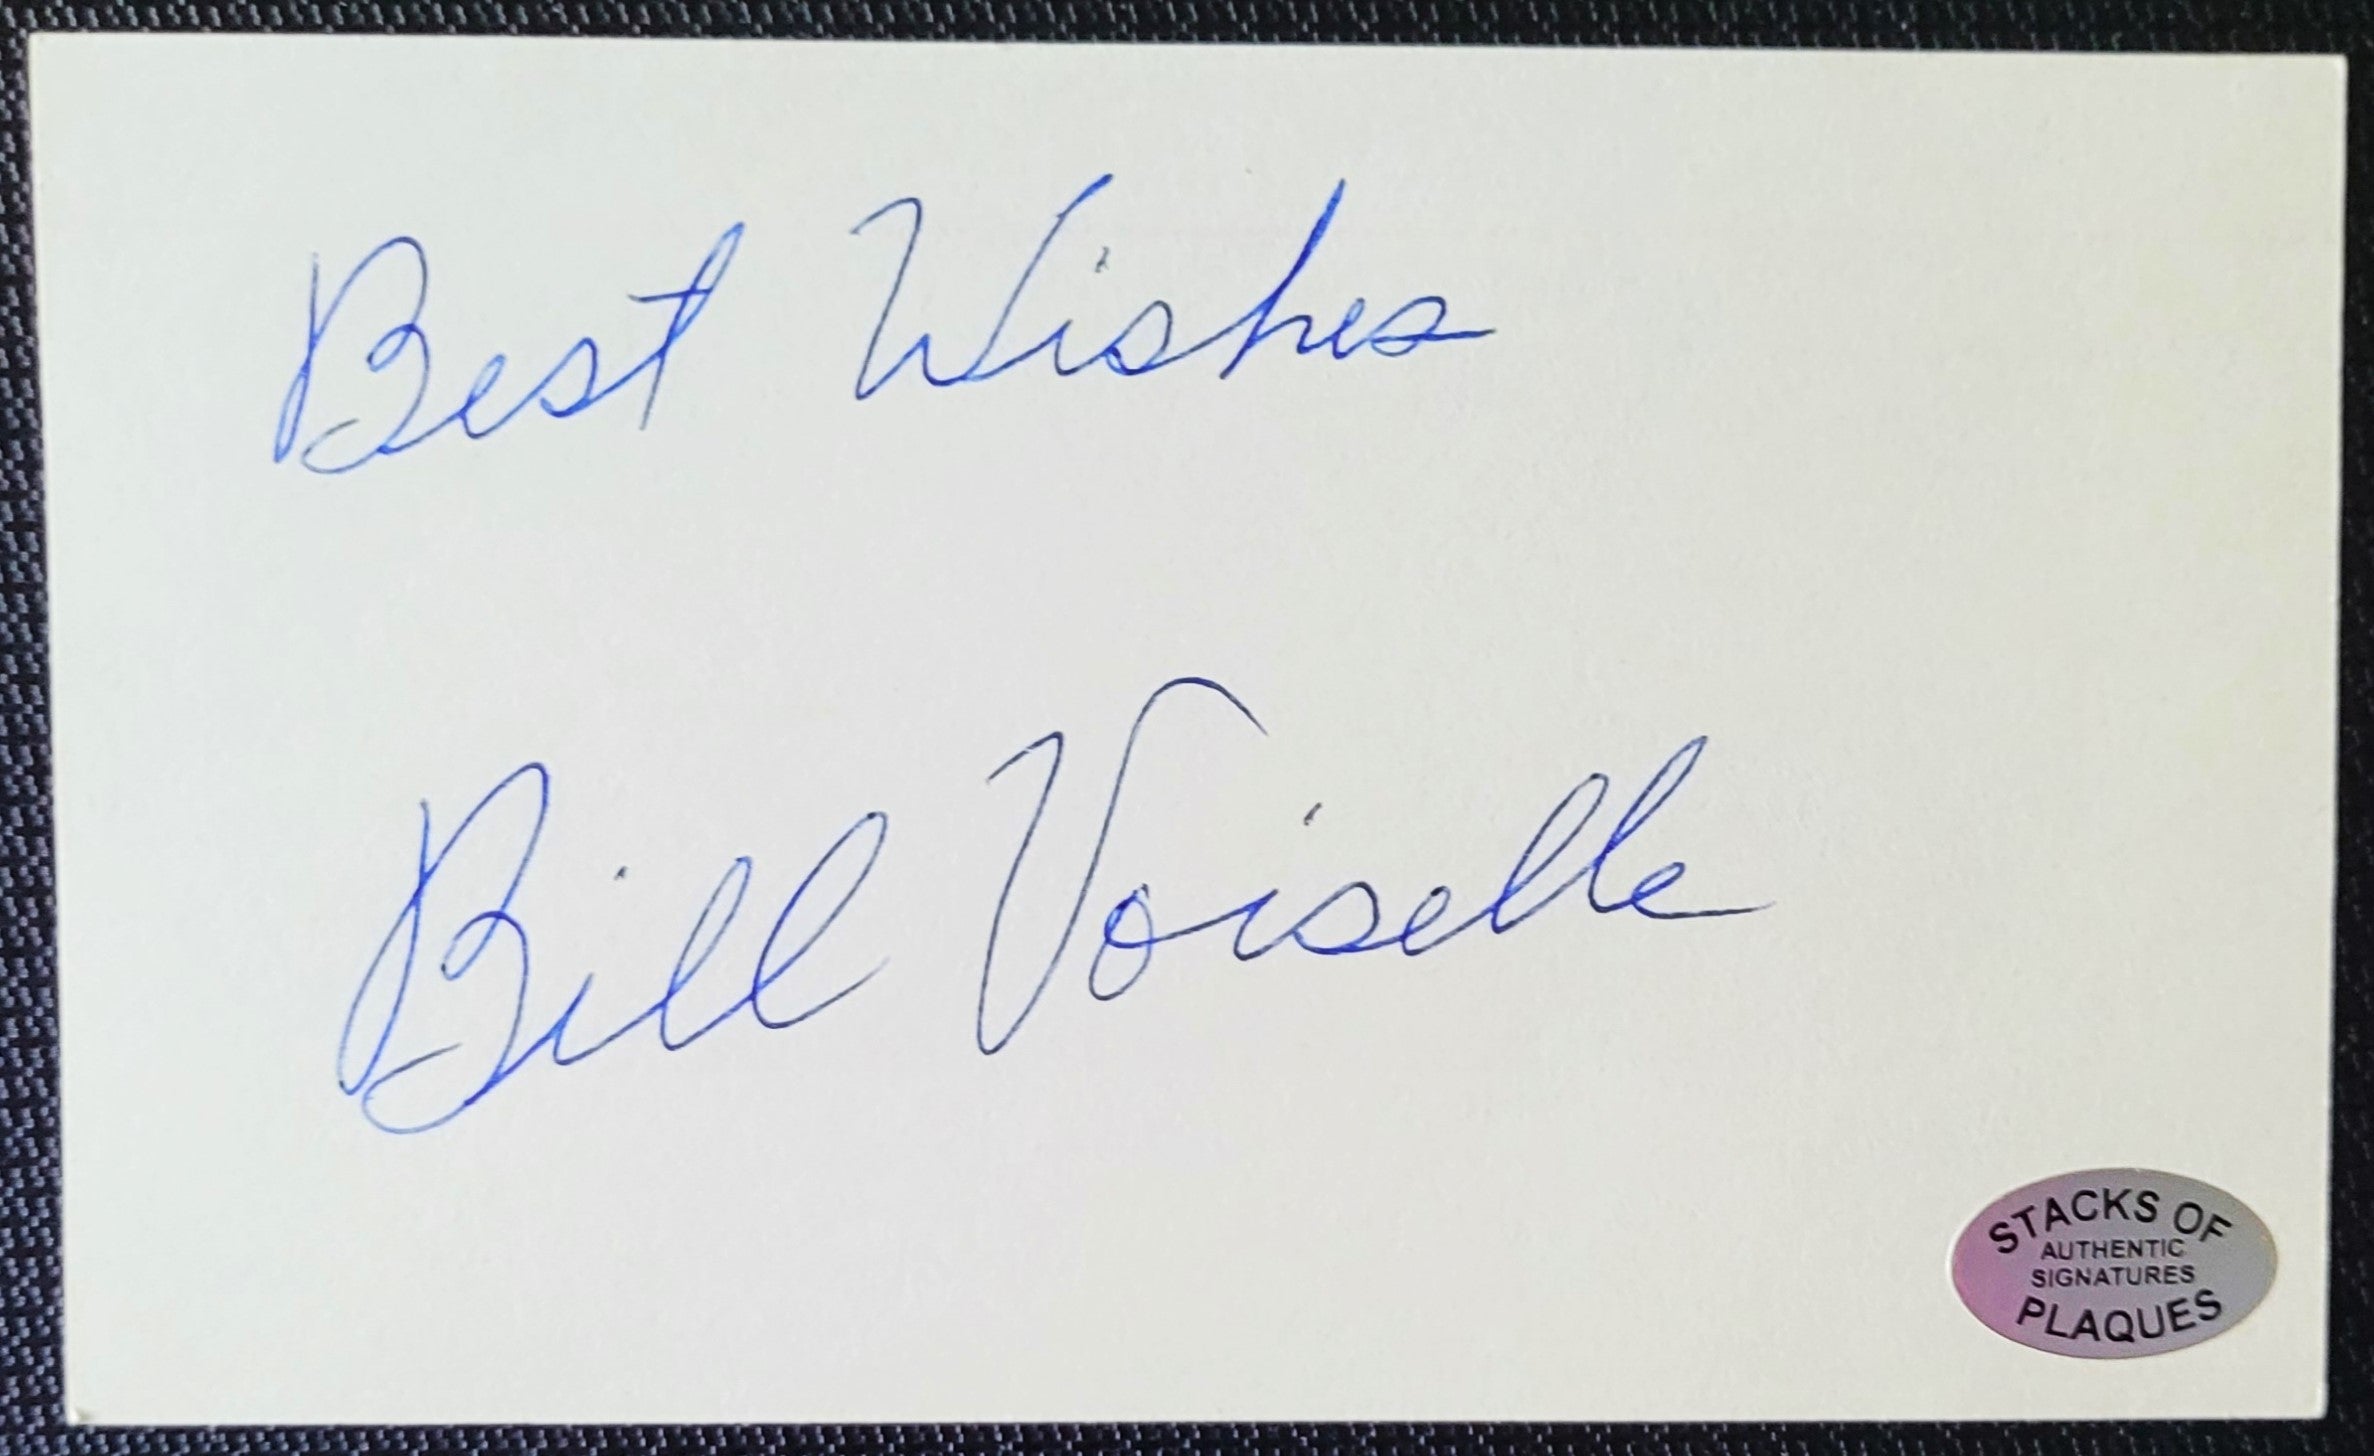 Best Wishes
Bill Voiselle
STACKS OF
AUTHENTIC
SIGNATURES
PLAQUES